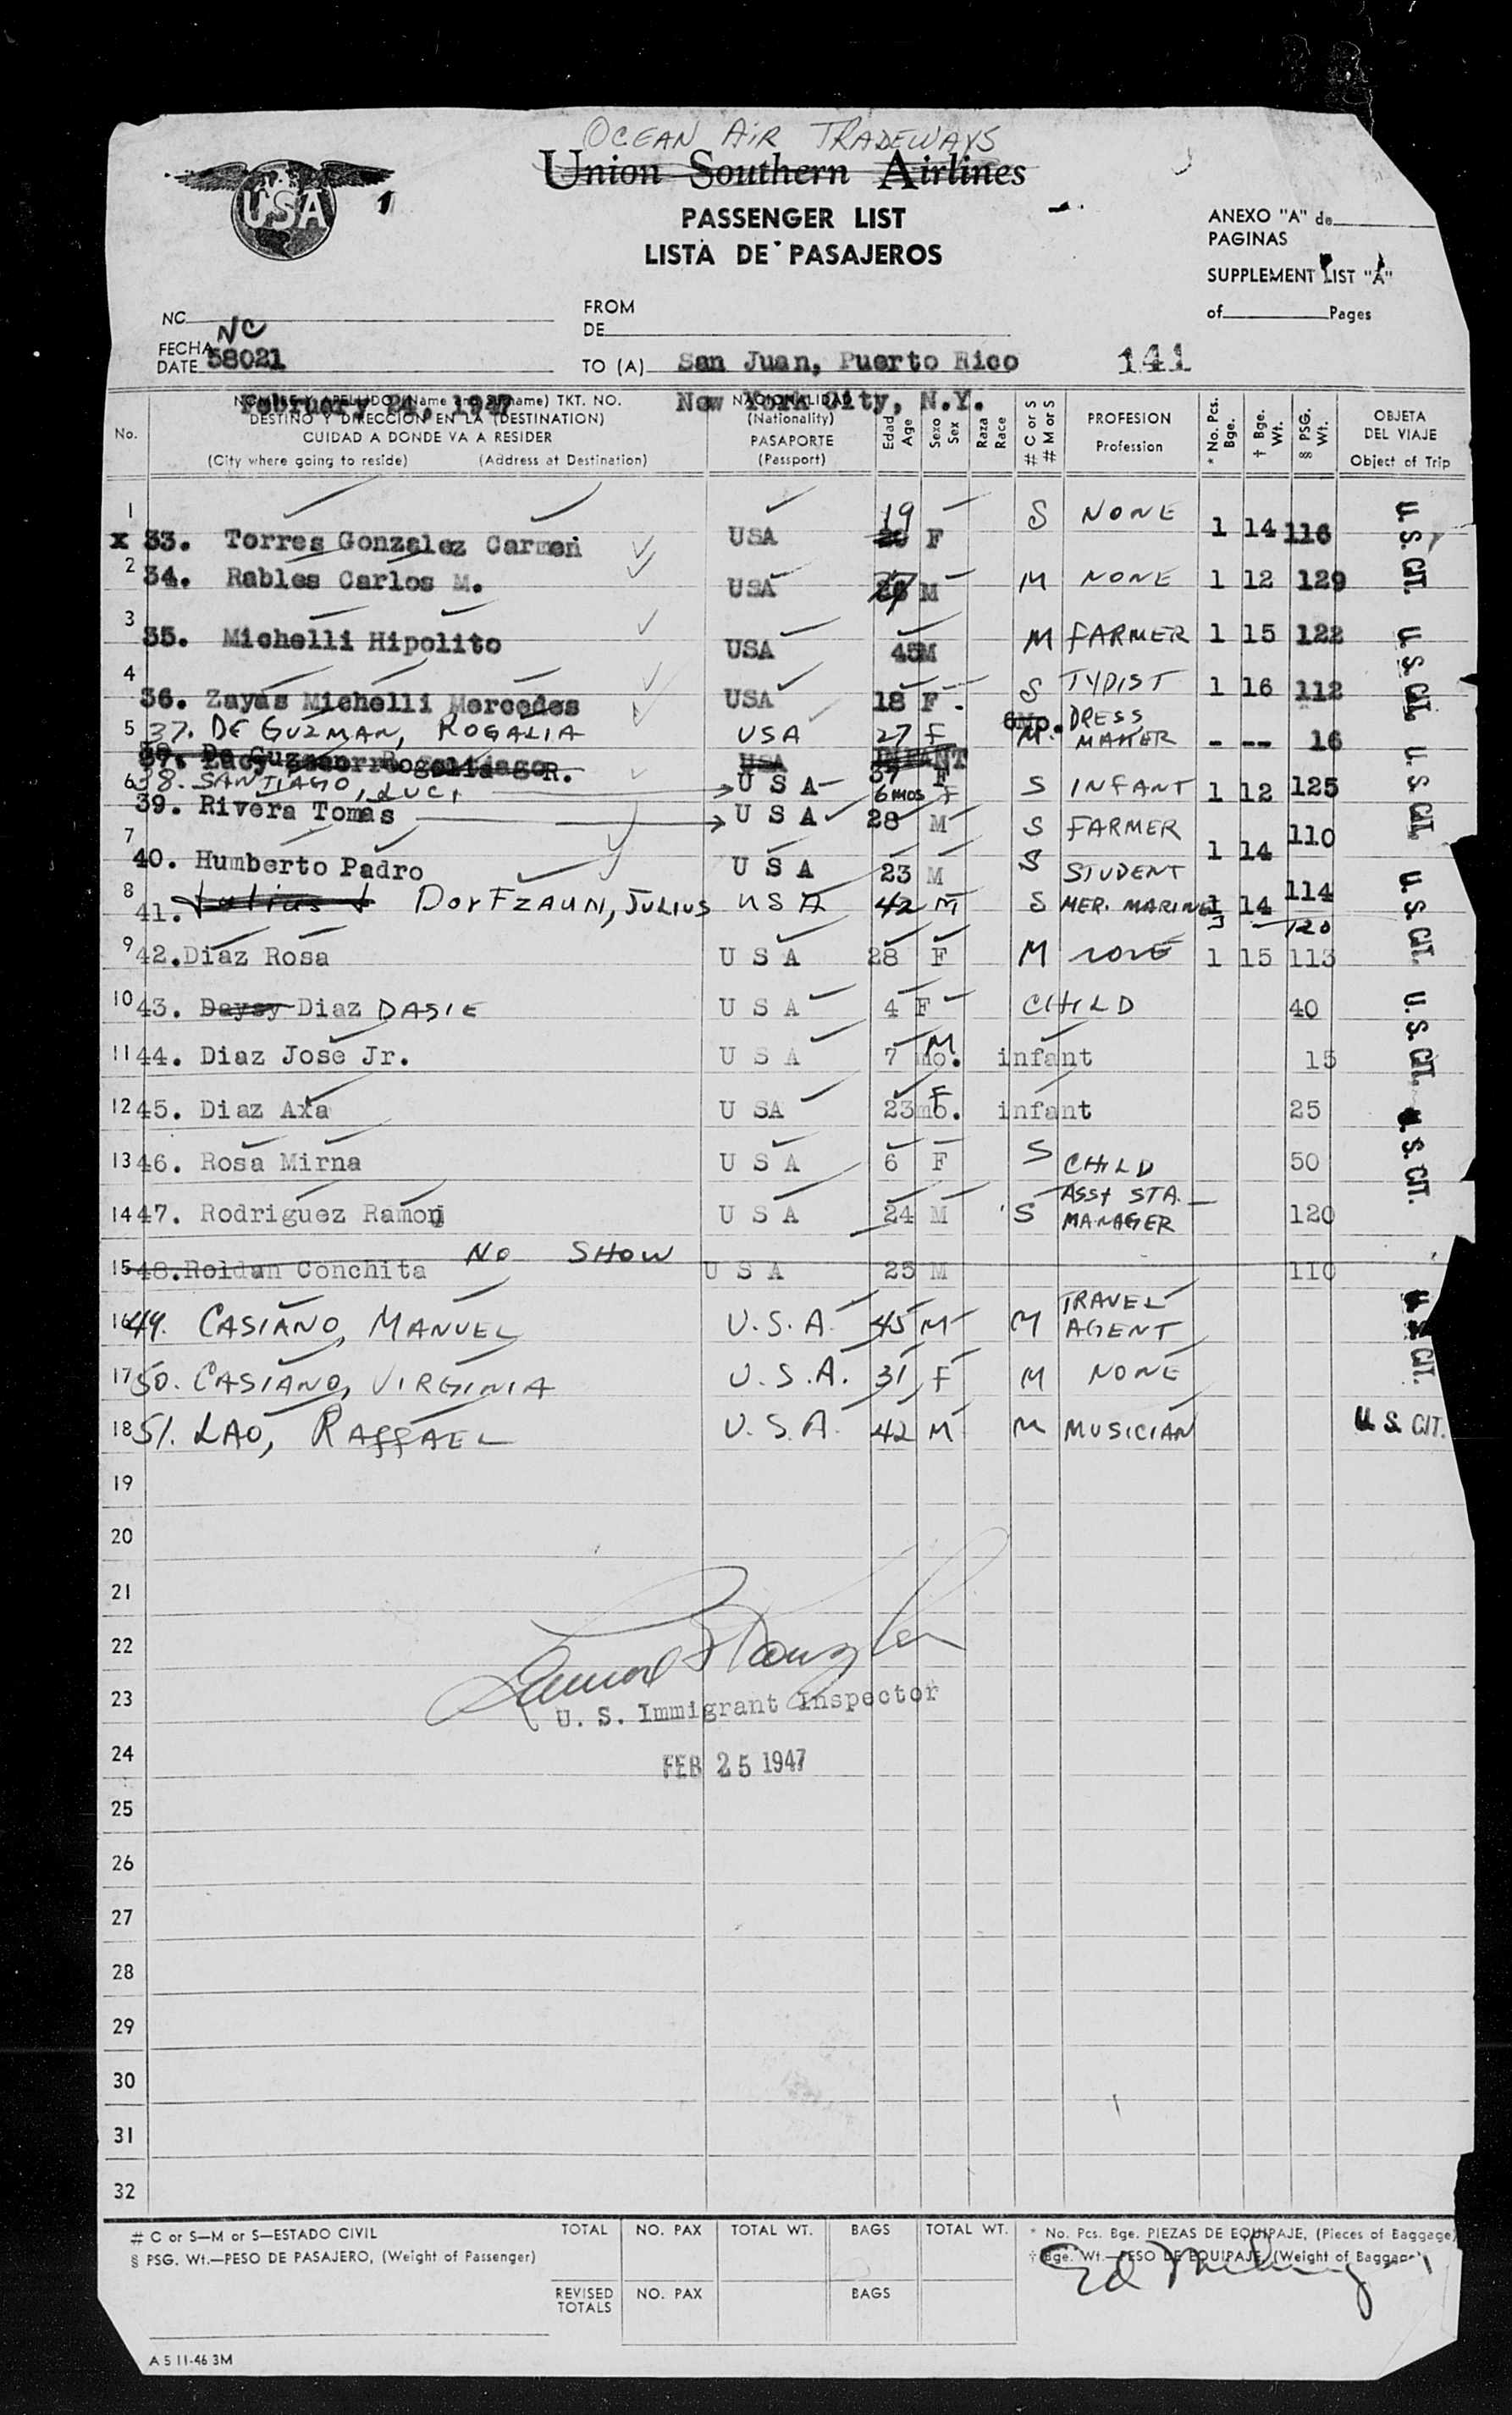 OCEAN AIR TRADEWAYS
Union Southern Airlines
USA
PASSENGER LIST
LISTA DE PASAJEROS
ANEXO "A" de
PAGINAS
SUPPLEMENT LIST "A"
of Pages
NC
NC
FROM
DE
FECHA
DATE 58021
TO (A) San Juan, Puerto Rico
141
February 24, 1947
New York City, N.Y.
No.
NOMBRE Y APELLIDO (Name and Surname) TKT. NO.
DESTINO Y DIRECCION EN LA (DESTINATION)
CUIDAD A DONDE VA A RESIDER
(City where going to reside) (Address at Destination)
NACIONALIDAD
(Nationality)
PASAPORTE
(Passport)
Edad
Age
Sexo
Sex
Raza
Race
# C or S
# M or S
PROFESION
Profession
* No. Pcs.
Bge.
† Bge.
Wt.
§ PSG.
Wt.
OBJETA
DEL VIAJE
Object of Trip
1 x 33. Torres Gonzalez Carmen USA 19 F S NONE 1 14 116 U.S. CIT.
2 34. Rables Carlos M. USA M M NONE 1 12 129
3 35. Michelli Hipolito USA 45 M M FARMER 1 15 122 U.S. CIT.
4 36. Zayas Michelli Mercedes USA 18 F. S TYPIST 1 16 112
5 37. DE GUZMAN, ROGALIA USA 27 F 6Mo. M. DRESS MAKER - -- 16 U.S. CIT.
USA INFANT
6 38. SANTIAGO, LUCI U S A 37 F 6 mos F S INFANT 1 12 125
39. Rivera Tomas U S A 28 M S FARMER 110
7 40. Humberto Padro U S A 23 M S STUDENT 1 14
8 41. Julius J DorFZAUN, JULIUS USA 42 M S MER. MARINE 1 14 114 U.S. CIT.
120
9 42. Diaz Rosa U S A 28 F M NONE 1 15 113
10 43. Daysy Diaz DASIE U S A 4 F CHILD 40 U.S. CIT.
11 44. Diaz Jose Jr. U S A 7 mo. M infant 15
12 45. Diaz Axa U SA 23mo. F infant 25 U.S. CIT.
13 46. Rosa Mirna U S A 6 F S CHILD 50
14 47. Rodriguez Ramon U S A 24 M S ASST STA. MANAGER 120
15 48. Roldan Conchita NO SHOW U S A 25 M 110
16 49. CASIANO, MANUEL U.S.A. 45 M M TRAVEL AGENT U.S. CIT.
17 50. CASIANO, VIRGINIA U.S.A. 31 F M NONE
18 51. LAO, RAffAEL U.S.A. 42 M M MUSICIAN U.S. CIT.
19
20
21
22
23
U. S. Immigrant Inspector
24
FEB 25 1947
25
26
27
28
29
30
31
32
# C or S—M or S—ESTADO CIVIL
§ PSG. Wt.—PESO DE PASAJERO, (Weight of Passenger)
TOTAL NO. PAX TOTAL WT. BAGS TOTAL WT.
REVISED TOTALS NO. PAX BAGS
* No. Pcs. Bge. PIEZAS DE EQUIPAJE, (Pieces of Baggage)
† Bge. Wt.—PESO DE EQUIPAJE, (Weight of Baggage)
A 5 11-46 3M